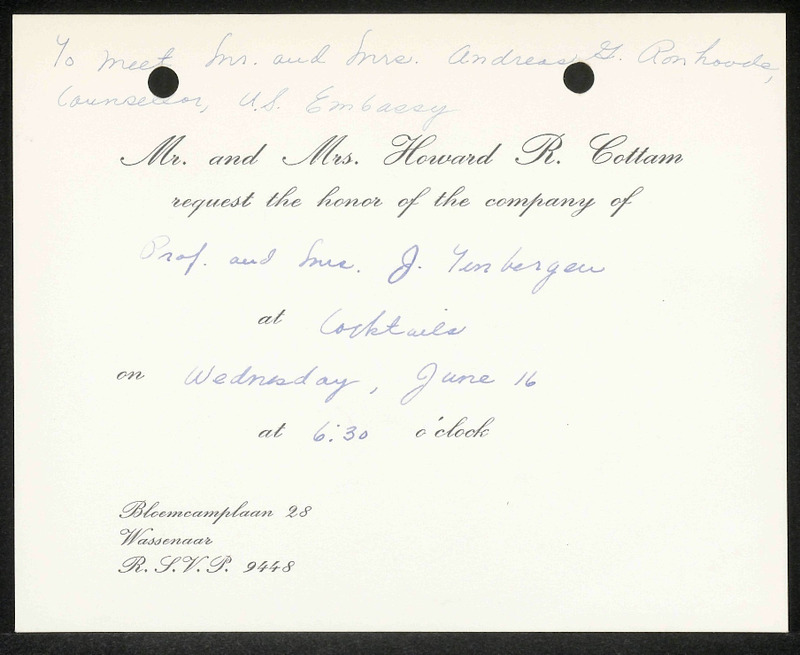 To meet Mr. and Mrs. Andreas G. Ronhovde,
Counsellor, U.S. Embassy
Mr. and Mrs. Howard R. Cottam
request the honor of the company of
Prof. and Mrs. J. Tinbergen
at Cocktails
on Wednesday, June 16
at 6:30 o'clock
Bloemcamplaan 28
Wassenaar
R.S.V.P. 9448